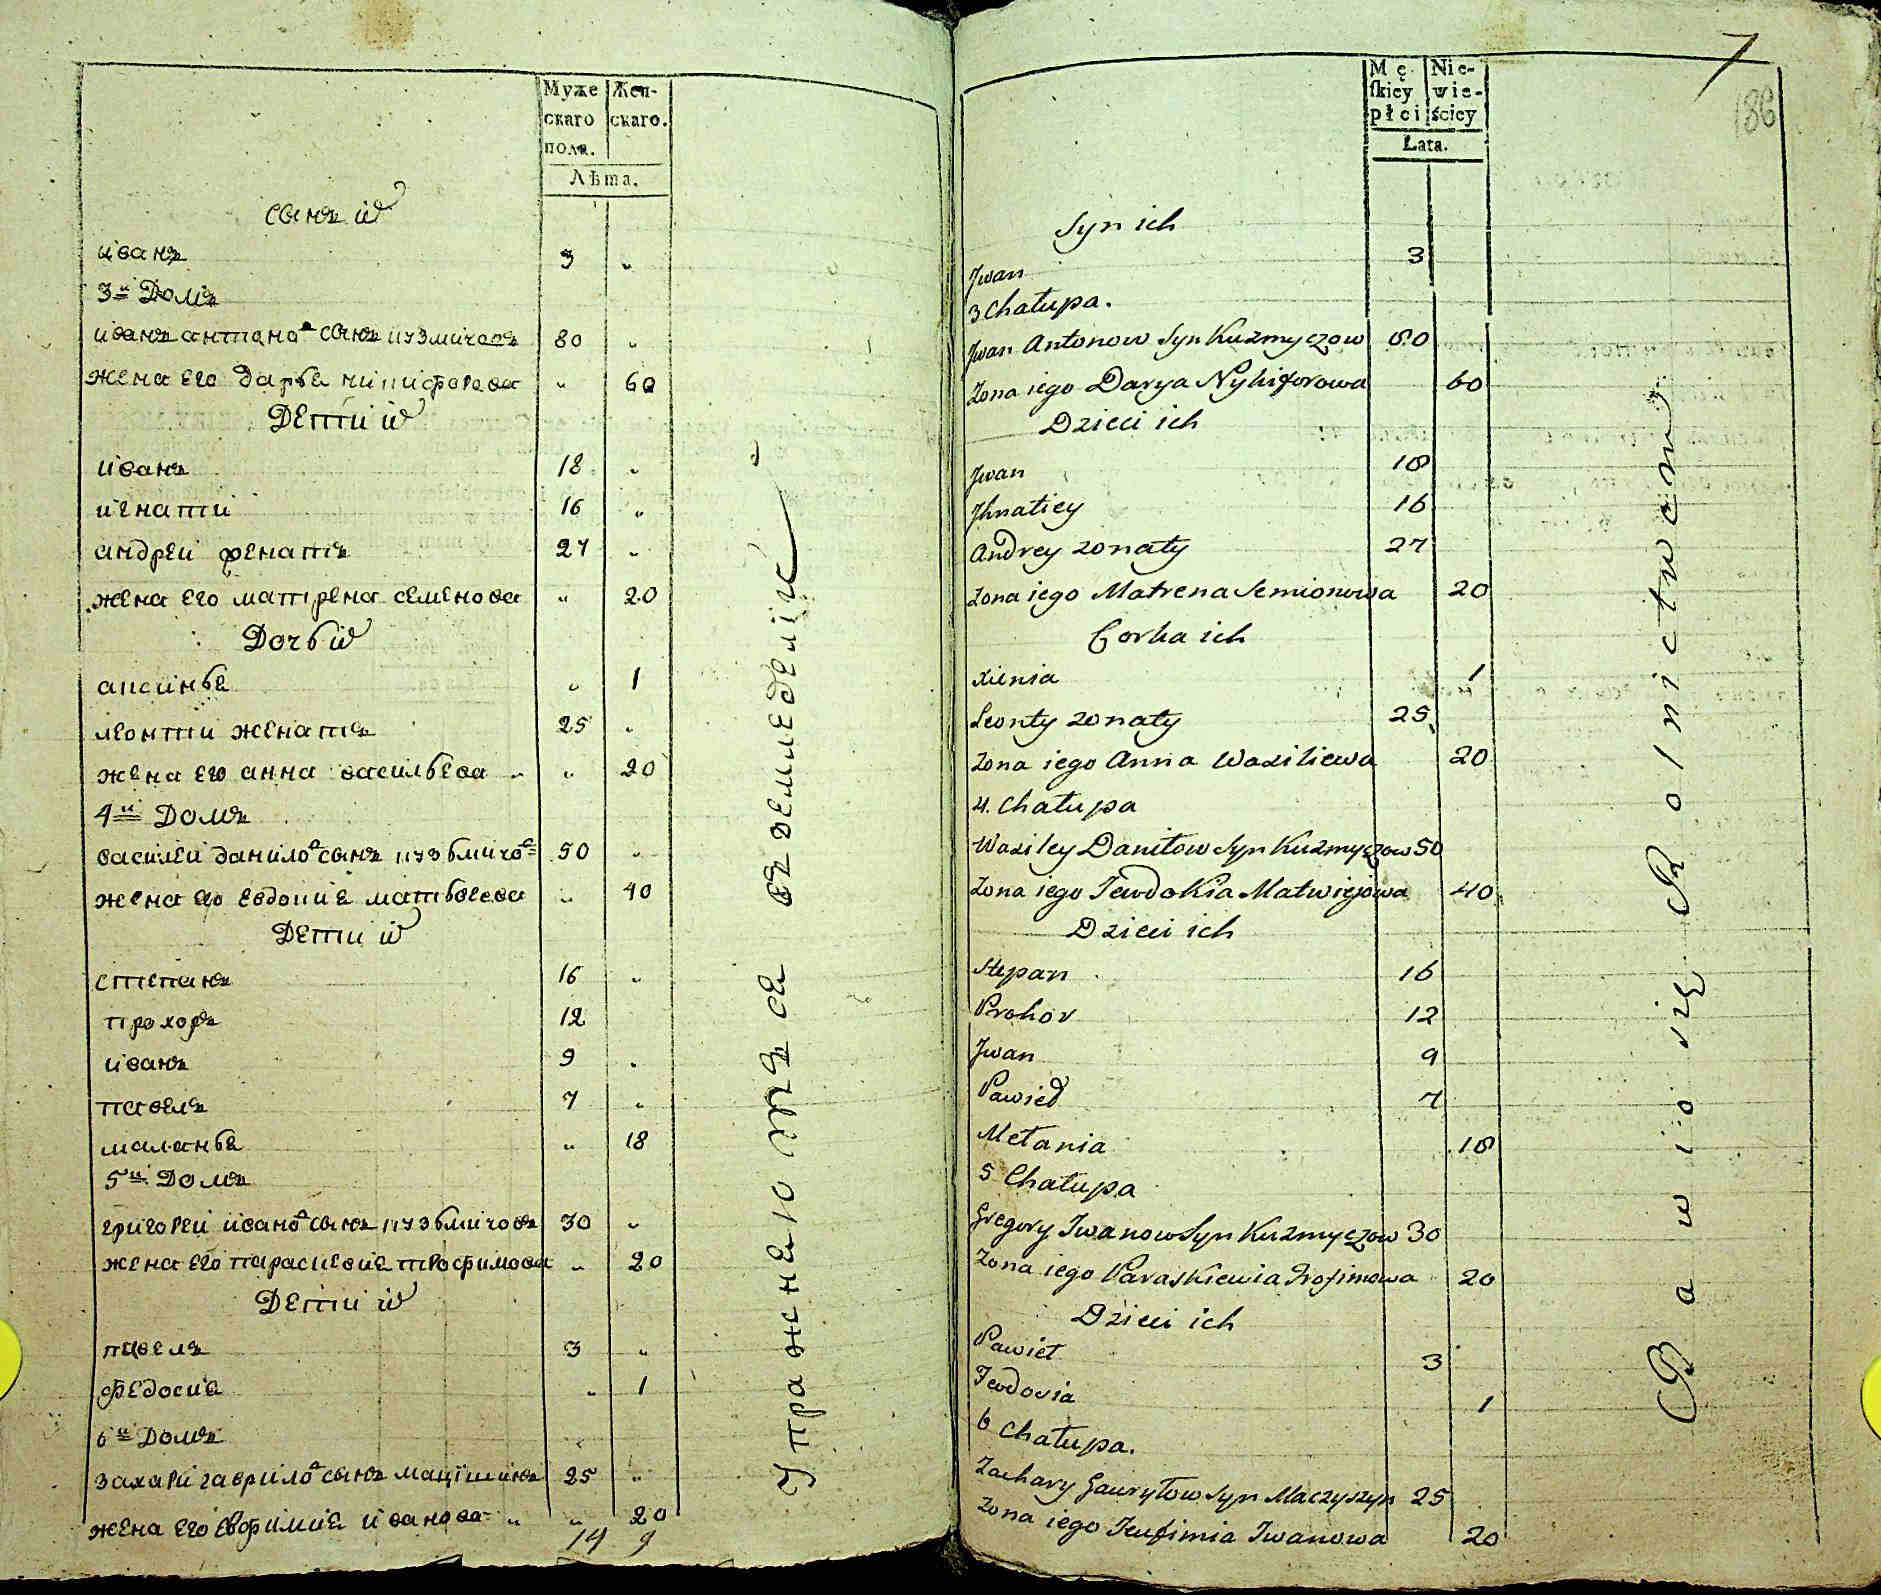 Муже
скаго
пола.
Жен-
скаго.
Лѣта.
сынъ ихъ
иванъ 3 „
3й Домъ
иванъ антоновъ сынъ кузмичовъ 80 „
жена его дарья никифорова „ 60
Дети ихъ
иванъ 18 „
игнатий 16 „
андрей женатъ 27 „
жена его матрена семенова „ 20
Дочь ихъ
аксинья „ 1
леонтий женатъ 25 „
жена его анна васильева „ „ 20
4й Домъ
василей данилов сынъ кузьмичов 50 „
жена его евдокия матвеева „ 40
Дети ихъ
степанъ 16 „
прохоръ 12
иванъ 9 „
павелъ 7 „
маланья „ 18
5й Домъ
григорей иванов сынъ кузьмичовъ 30 „
жена его параскевия трофимова „ 20
Дети ихъ
павелъ 3 „
федосия „ 1
6й Домъ
захарий гаврилов сынъ мацишинъ 25 „
жена его евфимия иванова „ „ 20
14 9
Упражнеютъ ся въ земледелии
7
186
Mę-
skiey
płci
Nie-
wie-
ściey
Lata.
Syn ich
Jwan 3
3 Chałupa.
Jwan Antonow Syn Kuzmyczow 80
Zona iego Darya Nykiforowa 60
Dzieci ich
Jwan 18
Jhnatiey 16
Andrey zonaty 27
Zona iego Matrena Semionowa 20
Corka ich
Xienia 1
Leonty zonaty 25
Zona iego Anna Wasiliewa 20
4. Chałupa
Wasiley Daniłow Syn Kuzmyczow 50
Zona iego Jewdokia Matwiejowa 40
Dzieci ich
Stepan 16
Prohor 12
Jwan 9
Pawieł 7
Mełania 18
5 Chałupa
Gregory Iwanow Syn Kuzmyczow 30
Zona iego Paraskiewia Trofimowa 20
Dzieci ich
Pawieł 3
Fewdosia 1
6 Chałupa.
Zachary Gawryłow Syn Maczyszyn 25
Zona iego Jeufimia Iwanowa 20
Bawią się Rolnictwem